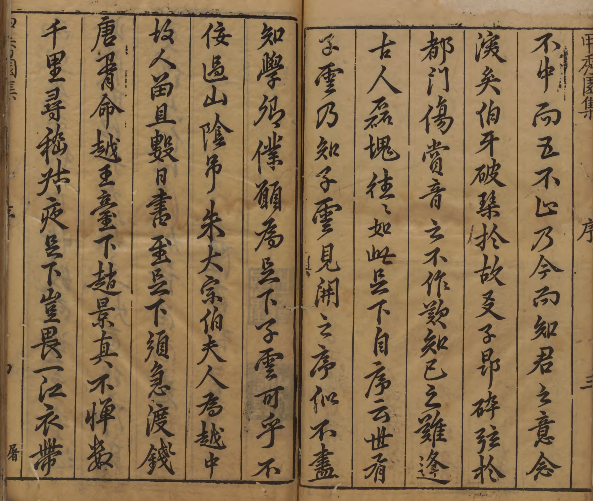 甲秀園集
序
三
不中而五不止乃今而知君之意念
深矣伯牙破琴扵故交子昂碎弦扵
都門傷賞音之不作歎知己之難逢
古人磊塊徃〻如此足下自序云世有
子雲乃知子雲見開之序似不盡
知學卿僕願為足下子雲可乎不
佞過山陰弔朱大宗伯夫人為越中
故人畱且數日書至足下須急渡錢
唐胥命越王臺下趙景真不憚數
千里尋嵇叔夜足下豈畏一江衣帶